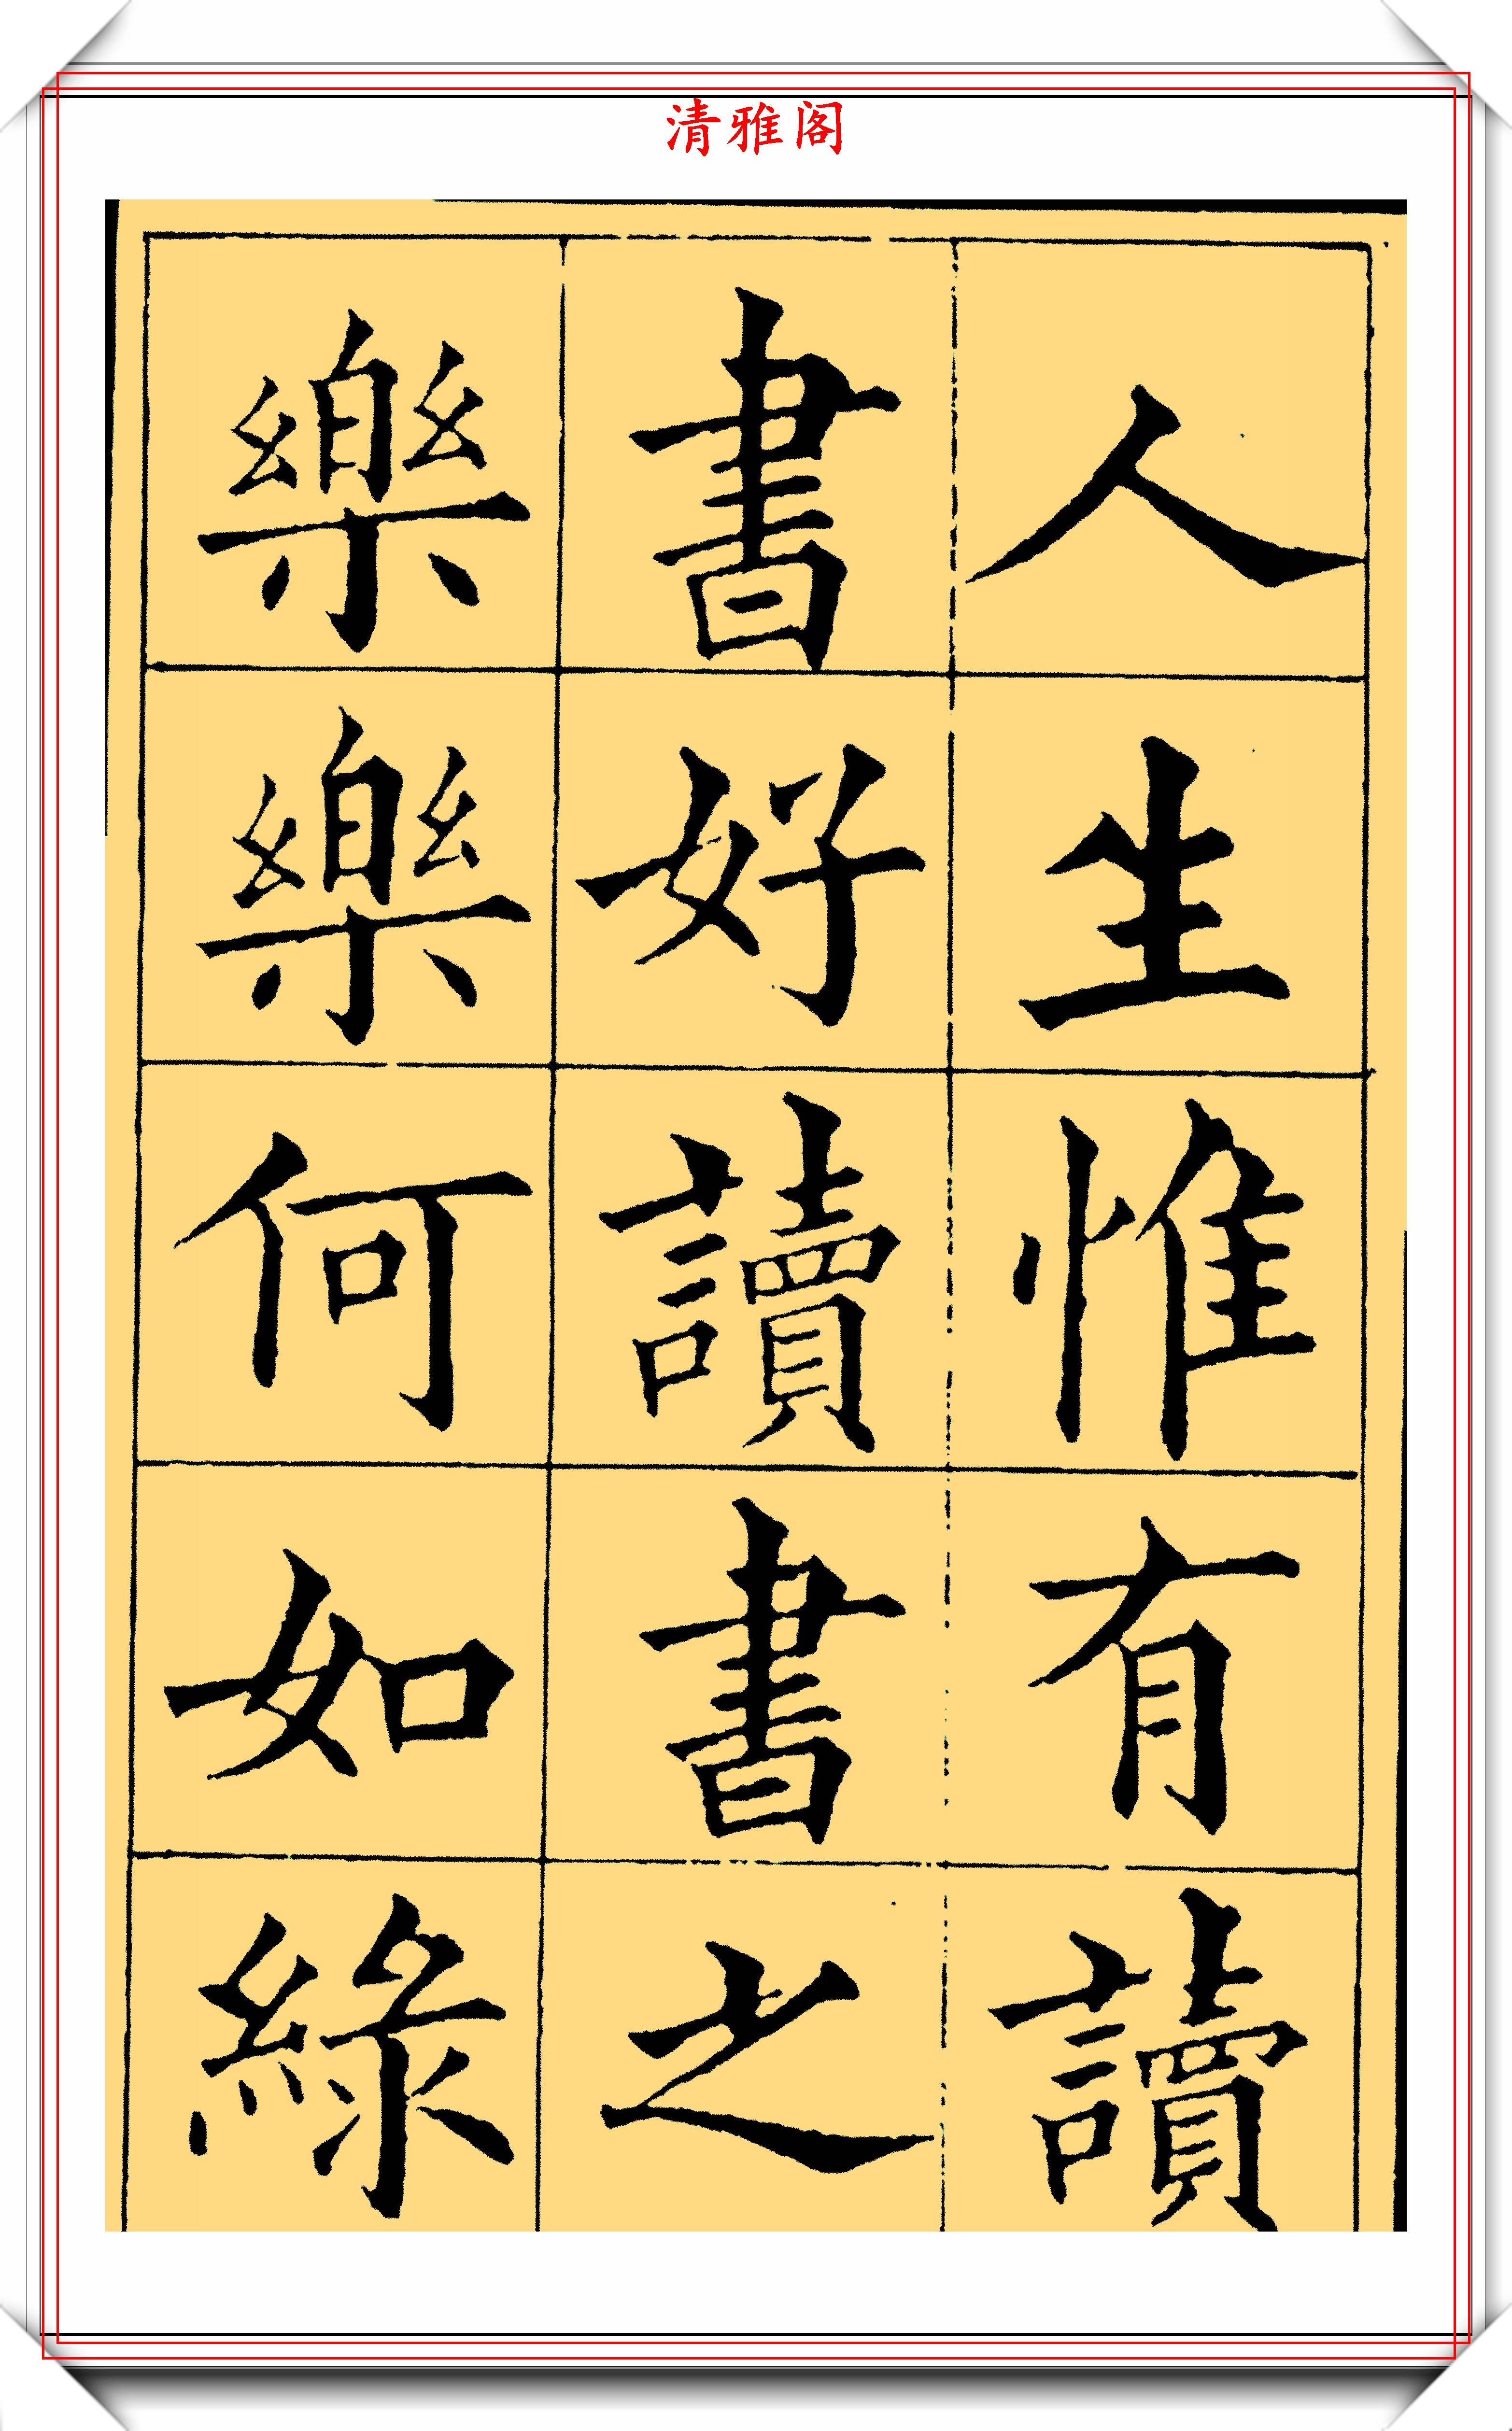 清雅阁
人生惟有讀
書好讀書之
樂樂何如綠